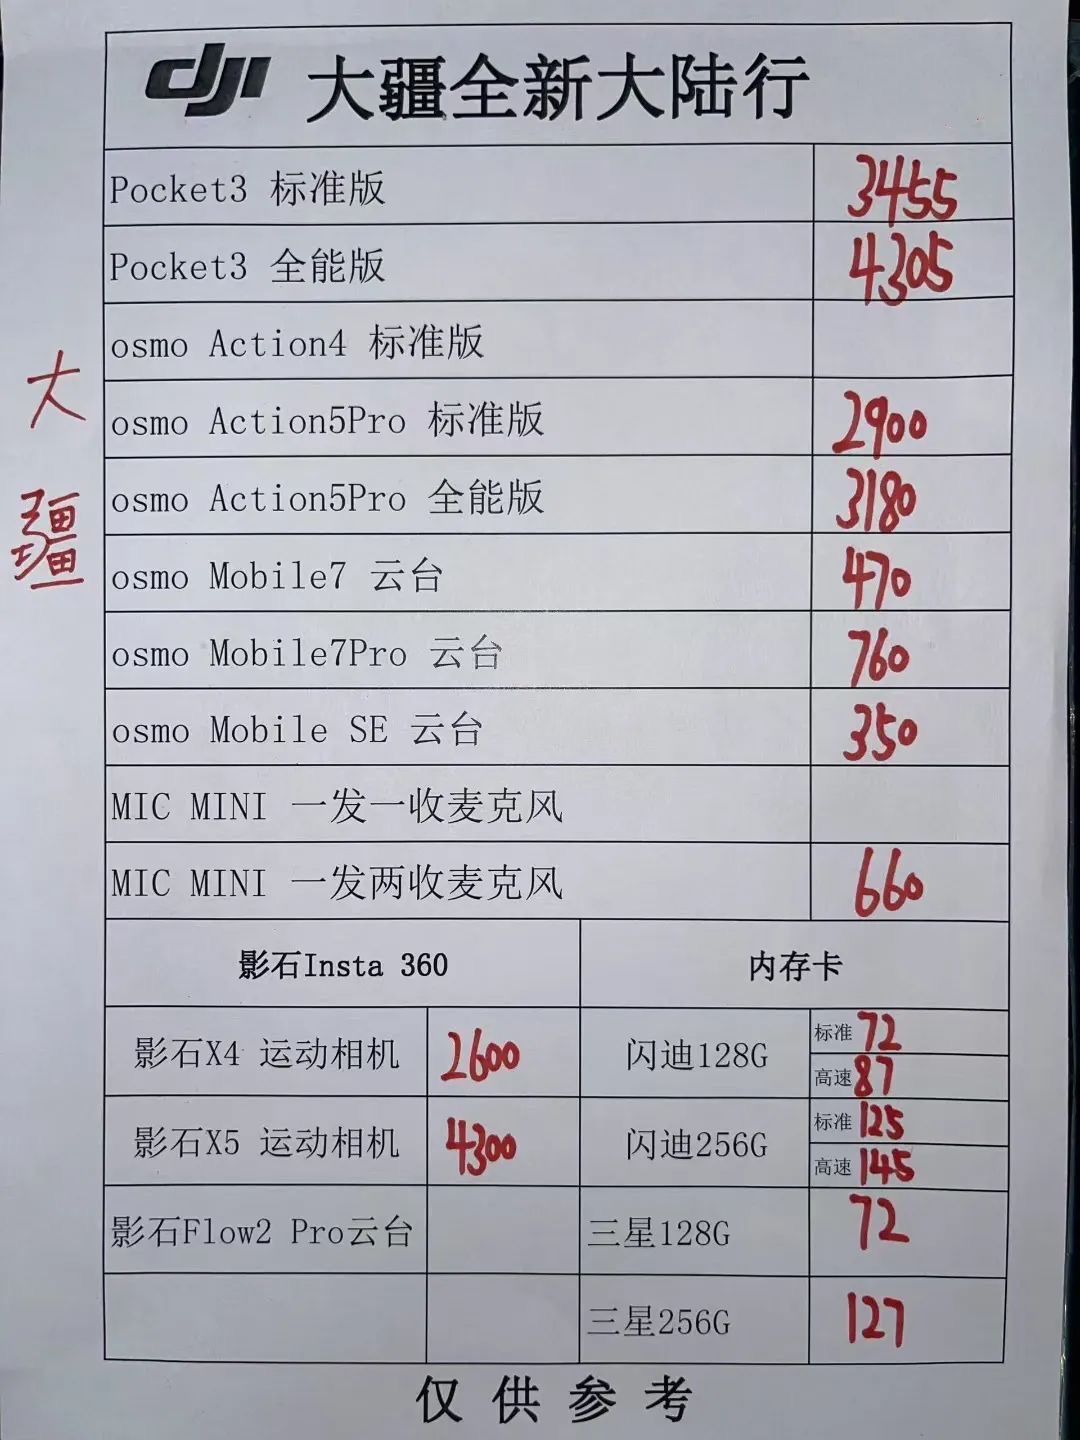 dji 大疆全新大陆行
Pocket3 标准版 3455
Pocket3 全能版 4305
osmo Action4 标准版
osmo Action5Pro 标准版 2900
osmo Action5Pro 全能版 3180
osmo Mobile7 云台 470
osmo Mobile7Pro 云台 760
osmo Mobile SE 云台 350
MIC MINI 一发一收麦克风
MIC MINI 一发两收麦克风 660
大疆
影石Insta 360 内存卡
影石X4 运动相机 2600 闪迪128G 标准 72
高速 87
影石X5 运动相机 4300 闪迪256G 标准 125
高速 145
影石Flow2 Pro云台 三星128G 72
三星256G 127
仅供参考